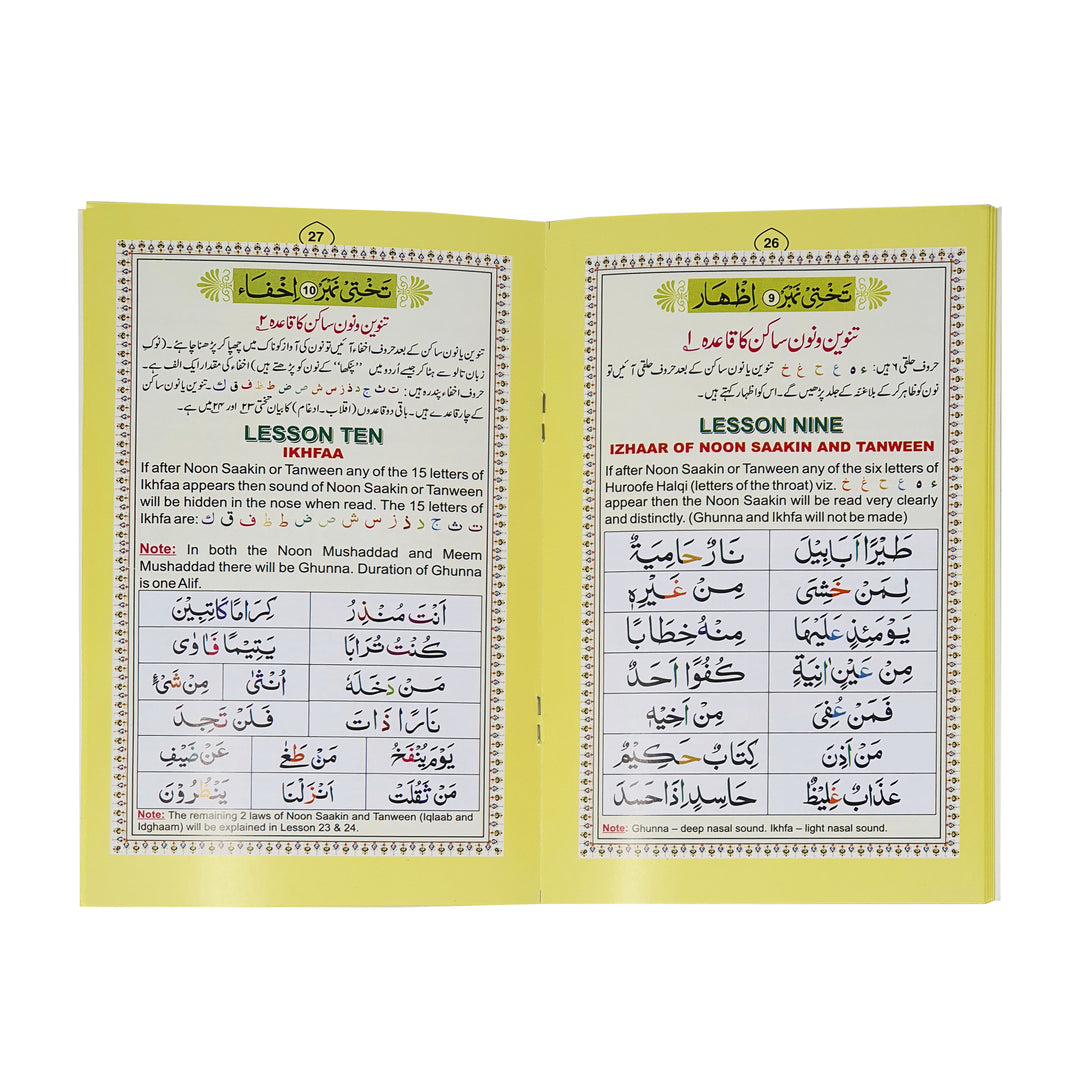 26
تختی نمبر 9 اظہار
تنوین و نون ساکن کا قاعدہ ۱
حروف حلقی ۶ ہیں: ء ہ ع ح غ خ تنوین یا نون ساکن کے بعد حروف حلقی آئیں تو
نون کو ظاہر کر کے بلا غنہ کے جلد پڑھیں گے۔ اس کو اظہار کہتے ہیں۔
LESSON NINE
IZHAAR OF NOON SAAKIN AND TANWEEN
If after Noon Saakin or Tanween any of the six letters of
Huroofe Halqi (letters of the throat) viz. ء ہ ع ح غ خ
appear then the Noon Saakin will be read very clearly
and distinctly. (Ghunna and Ikhfa will not be made)
طَيْرًا اَبَابِيْلَ نَارٌ حَامِيَةٌ
لِمَنْ خَشِىَ مِنْ غَيْرِهٖ
يَوْمَئِذٍ عَلَيْهَا مِنْهُ خِطَابًا
مِنْ عَيْنٍ اٰنِيَةٍ كُفُوًا اَحَدٌ
فَمَنْ عُفِىَ مِنْ اَخِيْهِ
مَنْ اَذِنَ كِتَابٌ حَكِيْمٌ
عَذَابٌ غَلِيْظٌ حَاسِدٍ اِذَا حَسَدَ
Note: Ghunna – deep nasal sound. Ikhfa – light nasal sound.
27
تختی نمبر 10 اخفاء
تنوین و نون ساکن کا قاعدہ ۲
تنوین یا نون ساکن کے بعد حروف اخفاء آئیں تو نون کی آواز کو ناک میں چھپا کر پڑھنا چاہئے۔ (نوک
زبان تالو سے ہٹا کر جیسے اُردو میں "پنکھا" کے نون کو پڑھتے ہیں) اخفاء کی مقدار ایک الف ہے۔
حروف اخفاء پندرہ ہیں: ت ث ج د ذ ز س ش ص ض ط ظ ف ق ك۔ تنوین یا نون ساکن
کے چار قاعدے ہیں۔ باقی دو قاعدوں (اقلاب۔ ادغام) کا بیان تختی ۲۳ اور ۲۴ میں ہے۔
LESSON TEN
IKHFAA
If after Noon Saakin or Tanween any of the 15 letters of
Ikhfaa appears then sound of Noon Saakin or Tanween
will be hidden in the nose when read. The 15 letters of
Ikhfa are: ت ث ج د ذ ز س ش ص ض ط ظ ف ق ك
Note: In both the Noon Mushaddad and Meem
Mushaddad there will be Ghunna. Duration of Ghunna
is one Alif.
اَنْتَ مُنْذِرُ كِرَامًا كَاتِبِيْنَ
كُنْتُ تُرَابًا يَتِيْمًا فَاٰوٰى
مَنْ دَخَلَهٗ اُنْثٰى مِنْ شَىْءٍ
نَارًا ذَاتَ فَلَنْ تَجِدَ
يَوْمَ يُنْفَخُ مَنْ طَغٰى عَنْ ضَيْفِ
مَنْ ثَقُلَتْ اَنْزَلْنَا يَنْظُرُوْنَ
Note: The remaining 2 laws of Noon Saakin and Tanween (Iqlaab and
Idghaam) will be explained in Lesson 23 & 24.